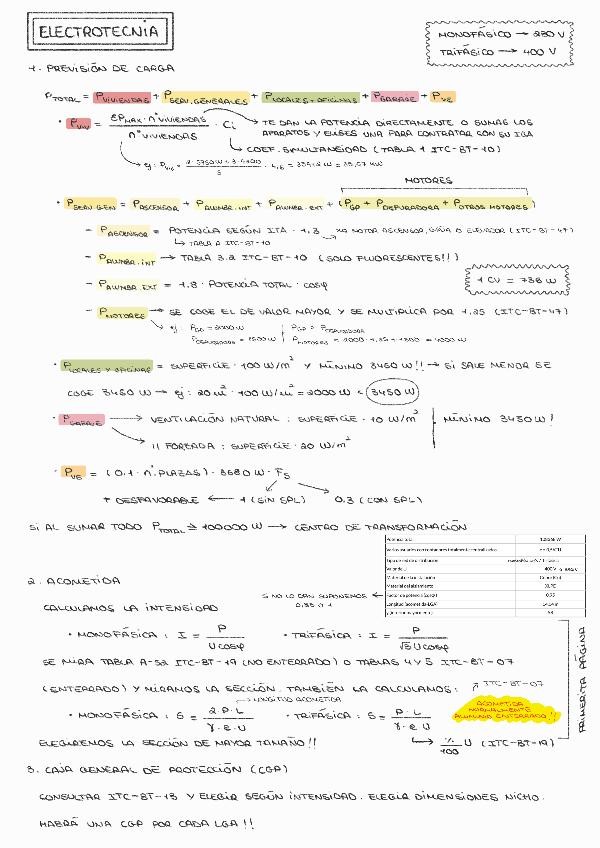 ELECTROTECNIA
MONOFÁSICO → 230 V
TRIFÁSICO → 400 V
1. PREVISIÓN DE CARGA
P TOTAL = P VIVIENDAS + P SERV.GENERALES + P LOCALES+OFICINAS + P GARAJE + P VE
· P VIV = ΣPMAX · nº VIVIENDAS / nº VIVIENDAS · Ci
TE DAN LA POTENCIA DIRECTAMENTE O SUMAS LOS
APARATOS Y ELIGES UNA PARA CONTRATAR CON SU IGA
COEF. SIMULTANEIDAD (TABLA 1 ITC-BT-10)
MOTORES
· P SERV.GEN = P ASCENSOR + P ALUMBR.INT + P ALUMBR.EXT + (P GP + P DEPURADORA + P OTROS MOTORES)
- P ASCENSOR = POTENCIA SEGÚN ITA · 1,3 → XA MOTOR ASCENSOR, GRÚA O ELEVADOR (ITC-BT-47)
TABLA A ITC-BT-10
- P ALUMBR.INT → TABLA 3.2 ITC-BT-10 (SOLO FLUORESCENTES!!)
1 CV = 736 W
- P ALUMBR.EXT = 1.8 · POTENCIA TOTAL · cosφ
- P MOTORES → SE COGE EL DE VALOR MAYOR Y SE MULTIPLICA POR 1.25 (ITC-BT-47)
· P LOCALES Y OFICINAS = SUPERFICIE · 100 W/m² Y MÍNIMO 3450 W!! → SI SALE MENOR SE
COGE 3450 W → ej: 20 m² · 100 W/m² = 2000 W < 3450 W
· P GARAJE → VENTILACIÓN NATURAL : SUPERFICIE · 10 W/m²
MÍNIMO 3450 W!
11 FORZADA : SUPERFICIE · 20 W/m²
· P VE = (0.1 · nº PLAZAS) · 3680 W · Fs
+ DESFAVORABLE ← 1 (SIN SPL) 0.3 (CON SPL)
SI AL SUMAR TODO P TOTAL ≥ 100000 W → CENTRO DE TRANSFORMACIÓN
2. ACOMETIDA
SI NO LO DAN SUPONEMOS
CALCULAMOS LA INTENSIDAD
· MONOFÁSICA : I = P / U cosφ · TRIFÁSICA : I = P / √3 U cosφ
SE MIRA TABLA A-52 ITC-BT-19 (NO ENTERRADO) O TABLAS 4 Y 5 ITC-BT-07
(ENTERRADO) Y MIRAMOS LA SECCIÓN. TAMBIÉN LA CALCULAMOS: ITC-BT-07
LONGITUD ACOMETIDA
· MONOFÁSICA : S = 2·P·L / γ·e·U · TRIFÁSICA : S = P·L / γ·e·U
ACOMETIDA
NORMALMENTE
ALUMINIO ENTERRADO !!
ELEGIREMOS LA SECCIÓN DE MAYOR TAMAÑO!! % / 100 U (ITC-BT-19)
PRIMERITA PÁGINA
3. CAJA GENERAL DE PROTECCIÓN (CGP)
CONSULTAR ITC-BT-13 Y ELEGIR SEGÚN INTENSIDAD. ELEGIR DIMENSIONES NICHO.
HABRÁ UNA CGP POR CADA LGA!!